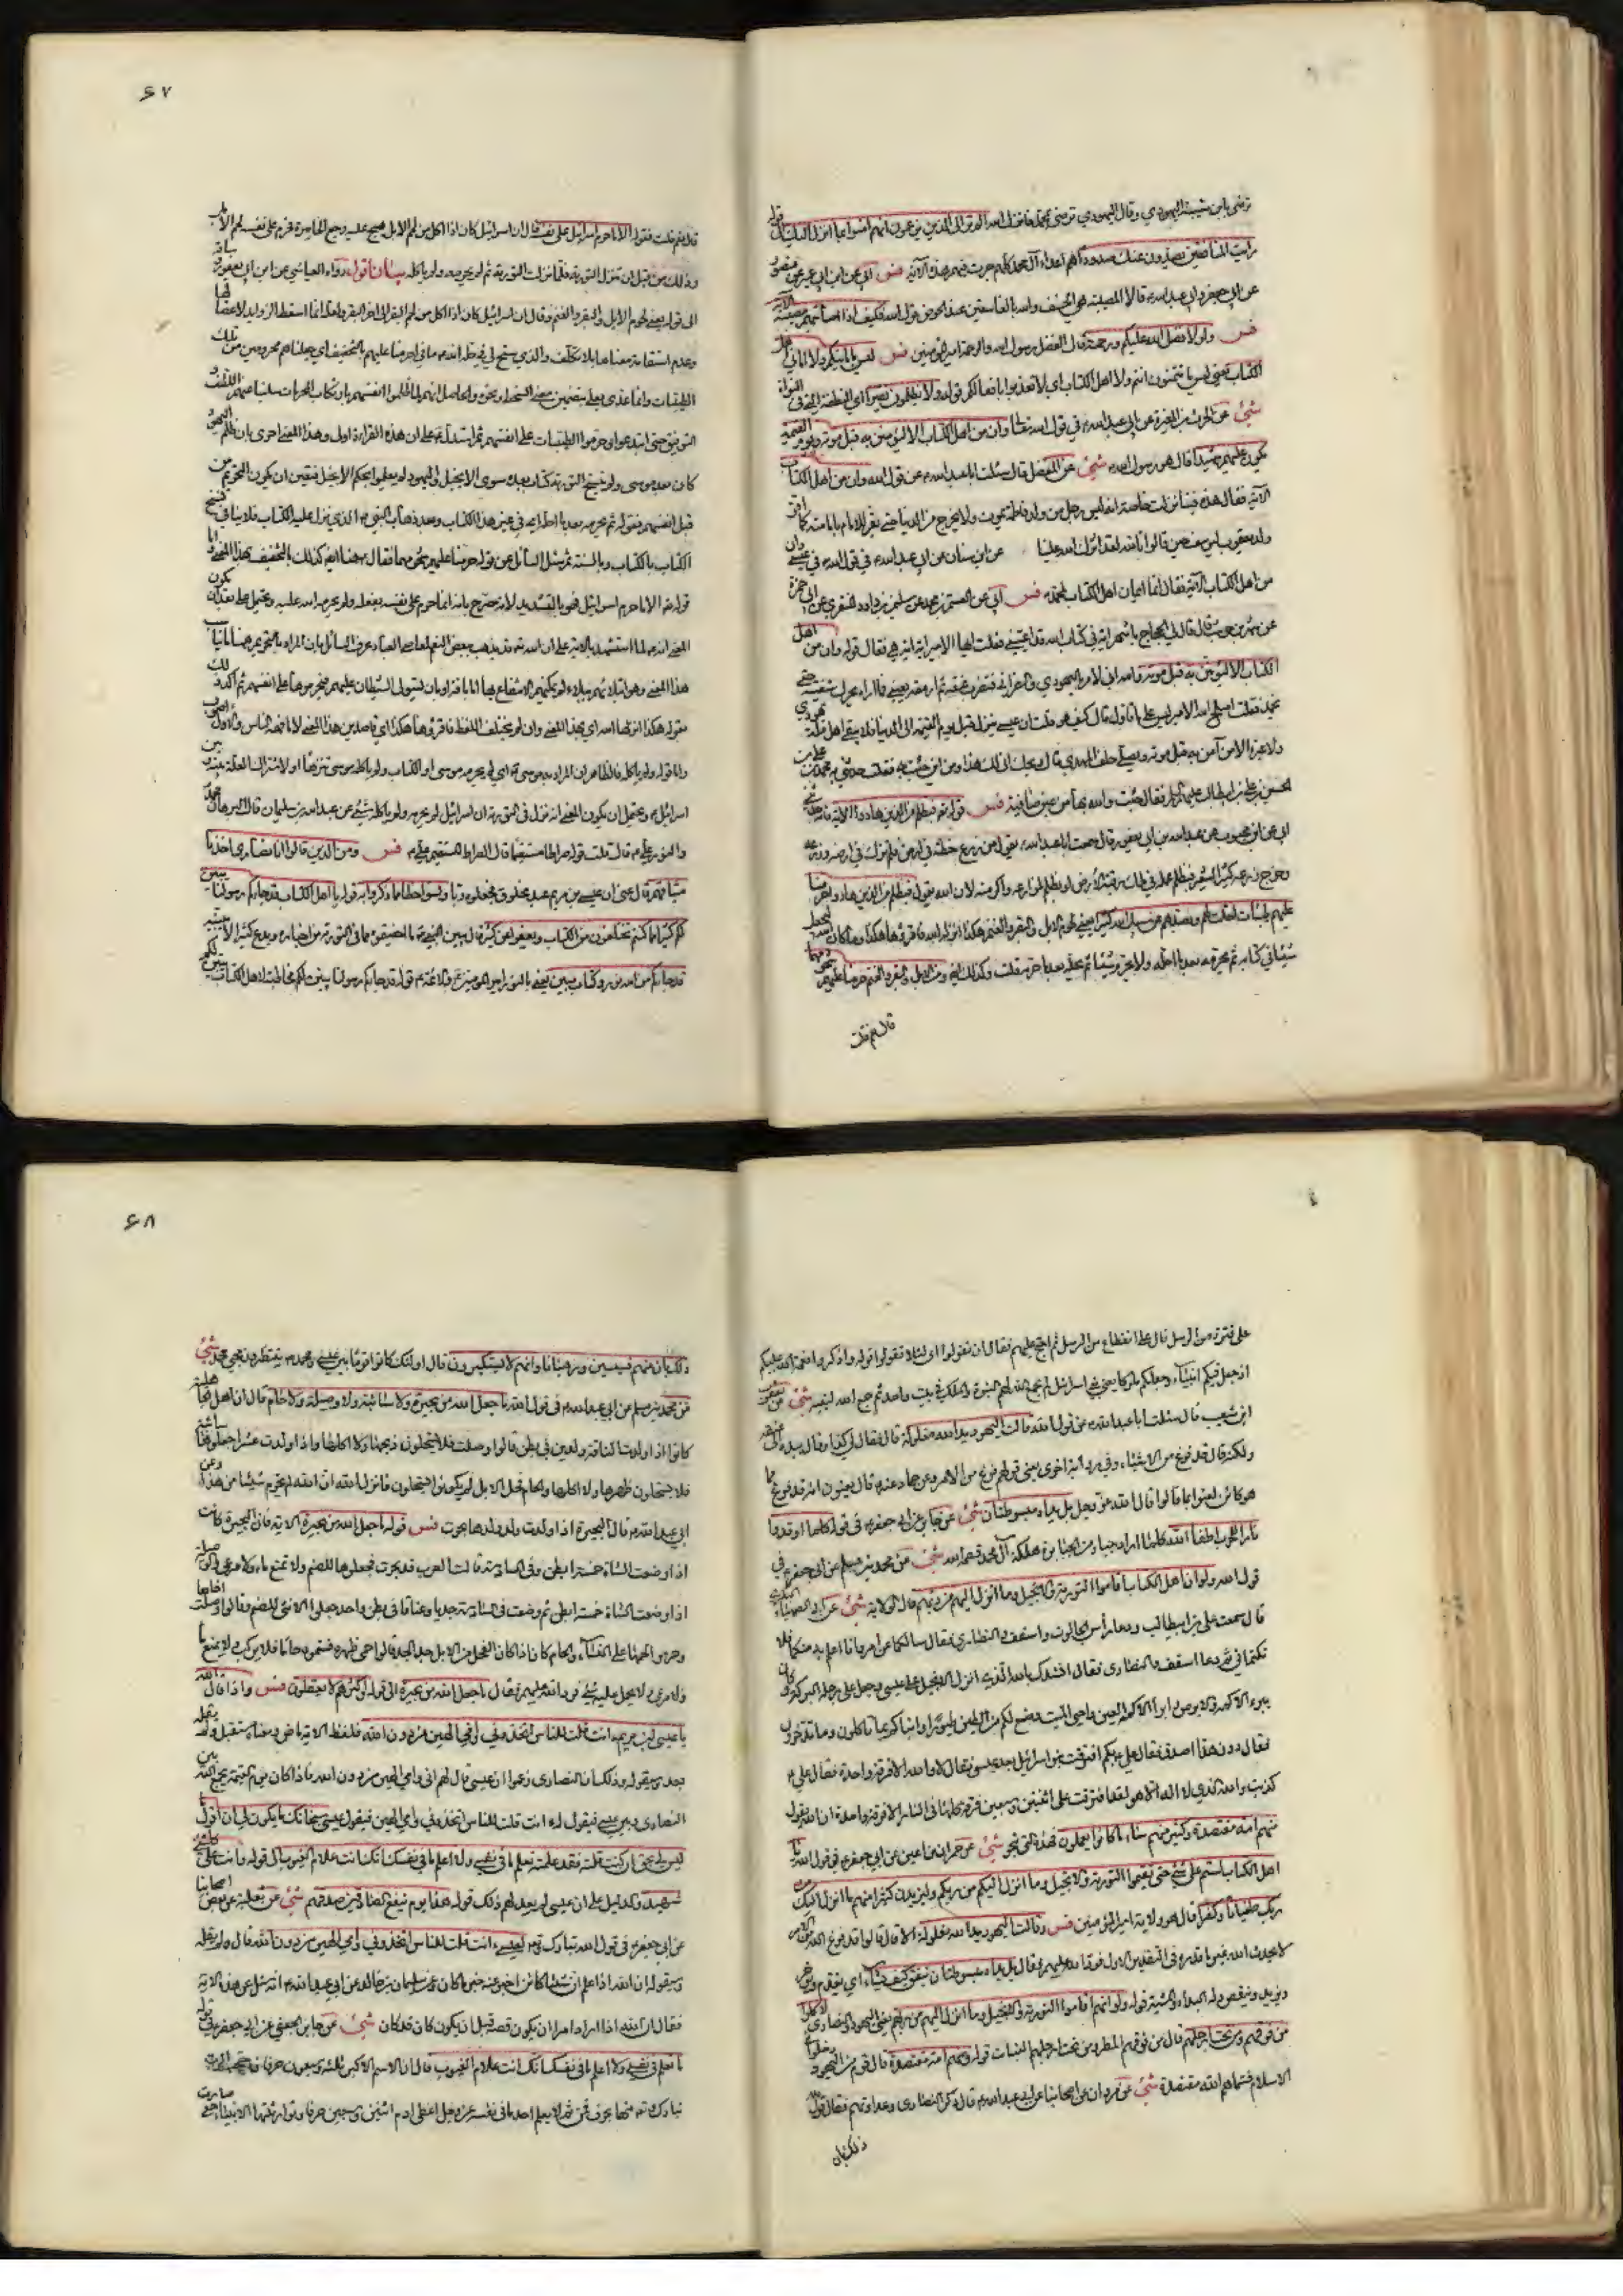 ترضى بابن شيبة اليهودي وقال اليهودي ترضى بمحمد فانزل الله الم تر الى الذين يزعمون انهم امنوا بما انزل اليك الى قوله
رايت المنافقين يصدون عنك صدودا هم اعداء آل محمد كلهم جرت فيهم هذه الآية فس ابي عن ابن ابي عمير عن منصور
عن ابي جعفر وابي عبد الله قالا المصيبة هي الخسف والله بالفاسقين عند الحوض قول الله فكيف اذا اصابتهم مصيبة الآية
فس ولولا فضل الله عليكم ورحمته قال الفضل رسول الله والرحمة امير المؤمنين فس ليس بامانيكم ولا اماني اهل
الكتاب يعني ليس ما تتمنون انتم ولا اهل الكتاب اي لا تعذبوا بافعالكم قوله ولا يظلمون نقيرا اي النقطة التي في النواة
شئ عن الحرث بن المغيرة عن ابي عبد الله في قول الله تعالى وان من اهل الكتاب الا ليؤمنن به قبل موته ويوم القيمة
يكون عليهم شهيدا قال هو رسول الله شئ عن المفضل قال سئلت ابا عبد الله عن قول الله وان من اهل الكتاب
الآية فقال هذه فينا نزلت خاصة انه ليس رجل من ولد فاطمة يموت ولا يخرج من الدنيا حتى يقر للامام بامامته كما اقر
ولد يعقوب ليوسف حين قالوا تالله لقد آثرك الله علينا عن ابن سنان عن ابي عبد الله في قول الله في عيسى وان
من اهل الكتاب الآية فقال انما ايمان اهل الكتاب لمحمد فس ابي عن القسم بن محمد عن سليمن بن داود المنقري عن ابي حمزة
عن شهر بن حوشب قال قال لي الحجاج يا شهر اية في كتاب الله قد اعيتني فقلت ايها الامير اية اية هي فقال قوله وان من اهل
الكتاب الا ليؤمنن به قبل موته والله اني لامر باليهودي والنصراني فتضرب عنقه ثم ارمقه بعيني فما اراه يحرك شفتيه حتى
يخمد فقلت اصلح الله الامير ليس على ما تاولت قال كيف هو قلت ان عيسى ينزل قبل يوم القيمة الى الدنيا فلا يبقى اهل ملة يهودي
ولا غيره الا من آمن به قبل موته ويصلي خلف المهدي قال ويحك انى لك هذا ومن اين جئت به فقلت حدثني به محمد بن علي بن
الحسين بن علي بن ابيطالب عليهم السلام فقال جئت والله بها من عين صافية فس قوله فبظلم من الذين هادوا الآية فانه حدثني
ابي عن ابن محبوب عن عبد الله بن ابي يعفور قال سمعت ابا عبد الله يقول من زرع حنطة في ارض فلم يزك في ارضه وزرعه
وخرج زرعه كثير الشعير فبظلم عمله في ملك رقبة الارض او بظلم لمزارعه واكرته لان الله يقول فبظلم من الذين هادوا حرمنا
عليهم طيبات احلت لهم وبصدهم عن سبيل الله كثيرا يعني لحوم الابل والبقر والغنم هكذا انزلها الله فاقرؤها هكذا وما كان الله ليحل
شيئا في كتابه ثم يحرمه بعد ما احله ولا يحرم شيئا ثم يحله بعد ما حرمه قلت وكذلك ايضا ومن الابل والبقر والغنم حرمنا عليهم شحومهما
قال نعم قلت
۶۷
قال نعم قلت فقوله الا ما حرم اسرائيل على نفسه قال ان اسرائيل كان اذا اكل من لحم الابل هيج عليه وجع الخاصرة فحرم على نفسه لحم الابل
وذلك من قبل ان تنزل التورية فلما نزلت التورية لم يحرمه ولم ياكله بيان اقول رواه العياشي عن ابن ابي يعفور
الى قوله يعني لحوم الابل والبقر والغنم وقال ان اسرائيل كان اذا اكل من لحم البقر الى اخر الخبر ولعله انما اسقط الزوايد لاعضالها
وعدم استقامة معناها بلا تكلف والذي سنح لي في حله انه قرا حرمنا عليهم بالتخفيف اي جعلناهم محرومين من تلك
الطيبات وانما عدى بعلى بتضمين معنى السخط ونحوه والحاصل انهم لما ظلموا انفسهم بارتكاب المحرمات سلبنا عنهم اللطف و
التوفيق حتى ابتدعوا وحرموا الطيبات على انفسهم ثم استدل على ان هذه القراءة اولى وهذا المعنى احرى بان ظلم اليهود
كان بعد موسى ولم ينسخ التورية كتاب بعده سوى الانجيل واليهود لم يعملوا بحكم الانجيل فتعين ان يكون التحريم من
قبل انفسهم فقوله ثم يحرمه بعد ما احله اي في غير هذا الكتاب وبعد ذهاب النبي الذي نزل عليه الكتاب فلا ينافي نسخ
الكتاب بالكتاب وبالسنة ثم سئل السائل عن قوله حرمنا عليهم شحومهما فقال هنا ايضا كذلك بالتخفيف بهذا المعنى واما
قوله تع الا ما حرم اسرائيل فهو بالتشديد لانه مصرح بانه انما حرم على نفسه بفعله ولم يحرمه الله عليه ويحتمل على بعد ان يكون
المعنى انه لما استشهد بالآية على ان الله تع قد يذهب ببعض النعم لمعاصي العباد عرف السائل بان المراد بالتحريم هنا ما يناسب
هذا المعنى وهو ابتلائهم ببلاء لم يمكنهم الانتفاع بها اما بافة او بان يستولي الشيطان عليهم فيحرموها على انفسهم ثم اكد ذلك
بقوله هكذا انزلها الله اي بهذا المعنى وان لم يختلف اللفظ فاقرؤها هكذا اي قاصدين هذا المعنى لا ما فهمه الناس والاول اصوب
واما قوله ولم ياكله فالظاهر ان المراد به موسى اي لم يحرمه موسى او الكتاب ولم ياكله موسى تنزها او لاشتراك العلة بينه وبين
اسرائيل ويحتمل ان يكون المعنى انه نزل في التورية ان اسرائيل لم يحرمه ولم ياكله شئ عن عبد الله بن سليمان قال
والنور علي قال قلت قوله صراطا مستقيما قال الصراط المستقيم علي فس ومن الذين قالوا انا نصارى اخذنا
ميثاقهم قال عنى ان عيسى بن مريم عبد مخلوق فجعلوه ربا ونسوا حظا مما ذكروا به قوله يا اهل الكتاب قد جاءكم رسولنا يبين
لكم كثيرا مما كنتم تخفون من الكتاب ويعفو عن كثير قال يبين النبي ما اخفيتموه مما في التورية من اخباره ويدع كثيرا لا يبينه
قد جاءكم من الله نور وكتاب مبين يعني بالنور امير المؤمنين والائمة قوله قد جاءكم رسولنا يبين لكم مخاطبة لاهل الكتاب يبين لكم
على فترة من الرسل قال على انقطاع من الرسل ثم احتج عليهم فقال ان تقولوا اي لئلا تقولوا قوله واذكروا نعمة الله عليكم
اذ جعل فيكم انبياء وجعلكم ملوكا يعني في بني اسرائيل لم يجمع الله لهم النبوة والملك في بيت واحد ثم جمع الله لنبيه شئ عن يعقوب
ابن شعيب قال سئلت ابا عبد الله عن قول الله قالت اليهود يد الله مغلولة قال فقال لي كذا وقال بيده الى عنقه
ولكنه قال قد فرغ من الاشياء وفي رواية اخرى يعني قولهم فرغ من الامر وعن حماد عنه قال يعنون انه قد فرغ مما
هو كائن لعنوا بما قالوا قال الله عز وجل بل يداه مبسوطتان شئ عن جابر عن ابي جعفر في قوله كلما اوقدوا
نارا للحرب اطفاها الله كلما اراد جبار من الجبابرة هلكة آل محمد قصمه الله شئ عن محمد بن مسلم عن ابي جعفر في
قول الله ولو ان اهل الكتاب اقاموا التورية والانجيل وما انزل اليهم من ربهم قال الولاية شئ عن ابي الصهباء البكري
قال سمعت علي بن ابيطالب ودعا راس الجالوت واسقف النصارى فقال سائلكما عن امر وانا اعلم به منكما فلا
تكتماني ثم دعا اسقف النصارى فقال انشدك بالله الذي انزل الانجيل على عيسى وجعل على رجله البركة وكان
يبرئ الاكمه والابرص وابرأ الاكمه العين واحيى الميت وصنع لكم من الطين طيورا وانباكم بما تاكلون وما تدخرون
فقال دون هذا اصدق فقال علي بكم افترقت بنو اسرائيل بعد عيسى فقال لا والله الا فرقة واحدة فقال علي
كذبت والله الذي لا اله الا هو لقد افترقت على اثنتين وسبعين فرقة كلها في النار الا فرقة واحدة ان الله يقول
منهم امة مقتصدة وكثير منهم ساء ما كانوا يعملون فهذه التي تنجو شئ عن حمران بن اعين عن ابي جعفر في قول الله يا
اهل الكتاب لستم على شئ حتى تقيموا التورية والانجيل وما انزل اليكم من ربكم وليزيدن كثيرا منهم ما انزل اليك من
ربك طغيانا وكفرا قال هو ولاية امير المؤمنين فس وقالت اليهود يد الله مغلولة الآية قال قالوا قد فرغ الله من الامر
لا يحدث الله غير ما قدره في التقدير الاول فرد الله عليهم فقال بل يداه مبسوطتان ينفق كيف يشاء اي يقدم ويؤخر
ويزيد وينقص وله البداء والمشية قوله ولو انهم اقاموا التورية والانجيل وما انزل اليهم من ربهم يعني اليهود والنصارى لاكلوا
من فوقهم ومن تحت ارجلهم قال من فوقهم المطر ومن تحت ارجلهم النبات قوله منهم امة مقتصدة قال قوم من اليهود دخلوا
الاسلام فسماهم الله مقتصدة شئ عن مروان عن اصحابنا عن ابي عبد الله قال ذكر النصارى وعداوتهم فقال قول الله
ذلك بان
۶۸
ذلك بان منهم قسيسين ورهبانا وانهم لا يستكبرون قال اولئك كانوا قوما بين عيسى ومحمد ينتظرون مجئ محمد شئ
عن محمد بن مسلم عن ابي عبد الله في قول الله ما جعل الله من بحيرة ولا سائبة ولا وصيلة ولا حام قال ان اهل الجاهلية
كانوا اذا ولدت الناقة ولدين في بطن قالوا وصلت فلا يستحلون ذبحها ولا اكلها واذا ولدت عشرا جعلوها سائبة
فلا يستحلون ظهرها ولا اكلها والحام فحل الابل لم يكونوا يستحلون فانزل الله ان الله لم يحرم شيئا من هذا وعن
ابي عبد الله قال البحيرة اذا ولدت وولد ولدها بحرت فس قوله ما جعل الله من بحيرة الاية فان البحيرة كانت
اذا وضعت الشاة خمسة ابطن وفي السادسة قالت العرب قد بحرت فجعلوها للصنم ولا تمنع ماء ولا مرعى والوصيلة
اذا وضعت الشاة خمسة ابطن ثم وضعت في السادسة جديا وعناقا في بطن واحد جعلوا الانثى للصنم وقالوا وصلت اخاها
وحرموا لحمها على النساء والحام كان اذا كان الفحل من الابل جد الجد قالوا حمى ظهره فسموه حاما فلا يركب ولا يمنع ماء
ولا مرعى ولا يحمل عليه شئ فرد الله عليهم فقال ما جعل الله من بحيرة الى قوله واكثرهم لا يعقلون فس واذ قال الله
يا عيسى ابن مريم ءانت قلت للناس اتخذوني وامي الهين من دون الله فلفظ الاية ماض ومعناه مستقبل ولم يقله
بعد وسيقوله وذلك ان النصارى زعموا ان عيسى قال لهم اني وامي الهين من دون الله فاذا كان يوم القيمة يجمع الله بين
النصارى وبين عيسى فيقول له ءانت قلت للناس اتخذوني وامي الهين فيقول عيسى سبحانك ما يكون لي ان اقول ما
ليس لي بحق ان كنت قلته فقد علمته تعلم ما في نفسي ولا اعلم ما في نفسك انك انت علام الغيوب الى قوله وانت على كل شئ
شهيد والدليل على ان عيسى لم يقل لهم ذلك قوله هذا يوم ينفع الصادقين صدقهم شئ عن ثعلبة عن بعض اصحابنا
عن ابي جعفر في قول الله تبارك وتع لعيسى ءانت قلت للناس اتخذوني وامي الهين من دون الله قال لم يقله
وسيقوله ان الله اذا علم ان شيئا كائن اخبر عنه خبر ما كان عن سليمان بن خالد عن ابي عبد الله انه سئل عن هذه الاية
فقال ان الله اذا اراد امرا ان يكون قصه قبل ان يكون كان قد كان شئ عن جابر الجعفي عن ابي جعفر في قوله
تعلم ما في نفسي ولا اعلم ما في نفسك انك انت علام الغيوب قال ان الاسم الاكبر ثلثة وسبعون حرفا فاحتجب الرب
تبارك وتع منها بحرف فمن ثم لا يعلم احد ما في نفسه عز وجل اعطى ادم اثنين وسبعين حرفا وتوارثتها الانبياء حتى صارت